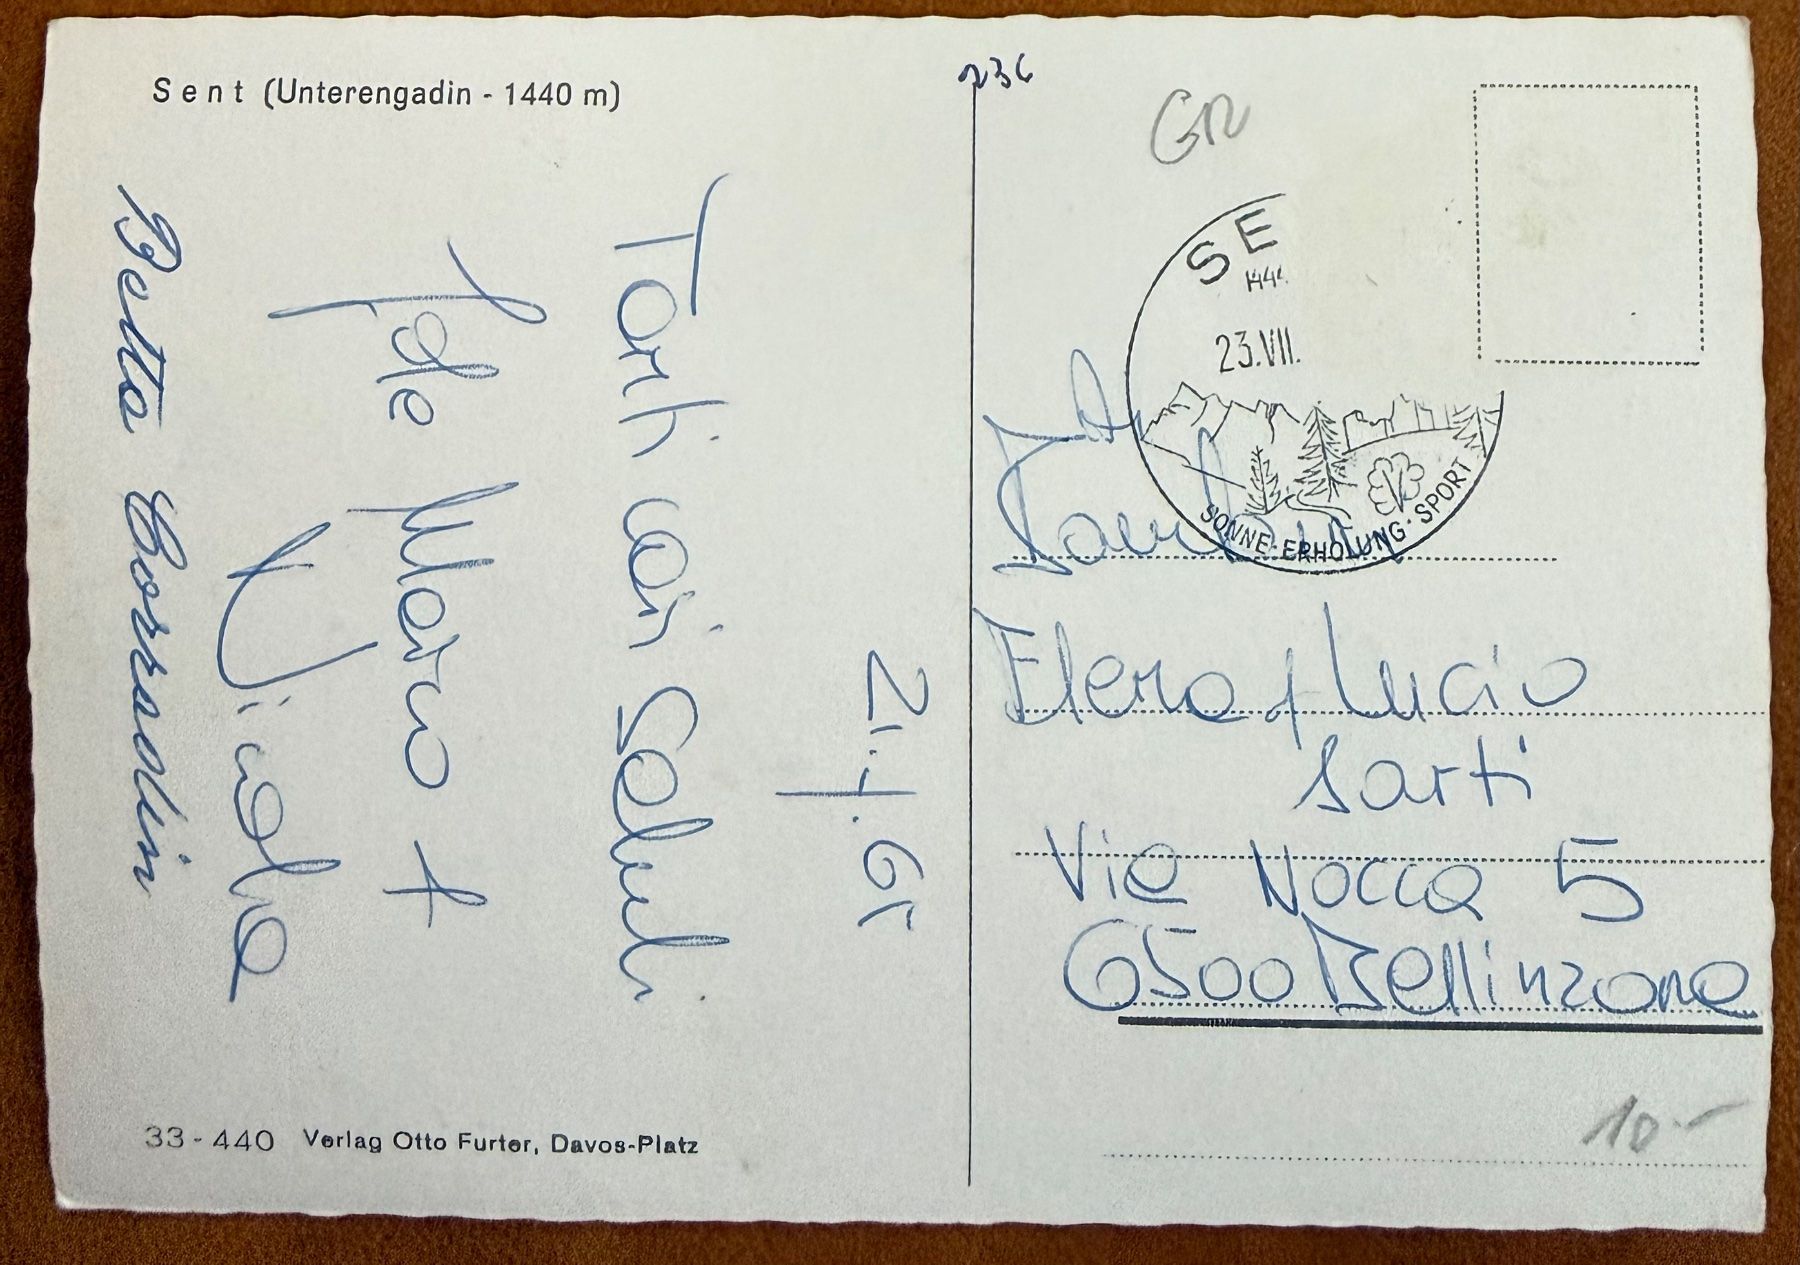 Sent (Unterengadin - 1440 m)
21.7.65
Tanti cari saluti
Jole Marco +
Nicola
Betta Corradin
33-440 Verlag Otto Furter, Davos-Platz
236
GR
SE
144
23.VII.
SONNE·ERHOLUNG·SPORT
Elena + Lucio
Sarti
Via Nocca 5
6500 Bellinzona
10.-